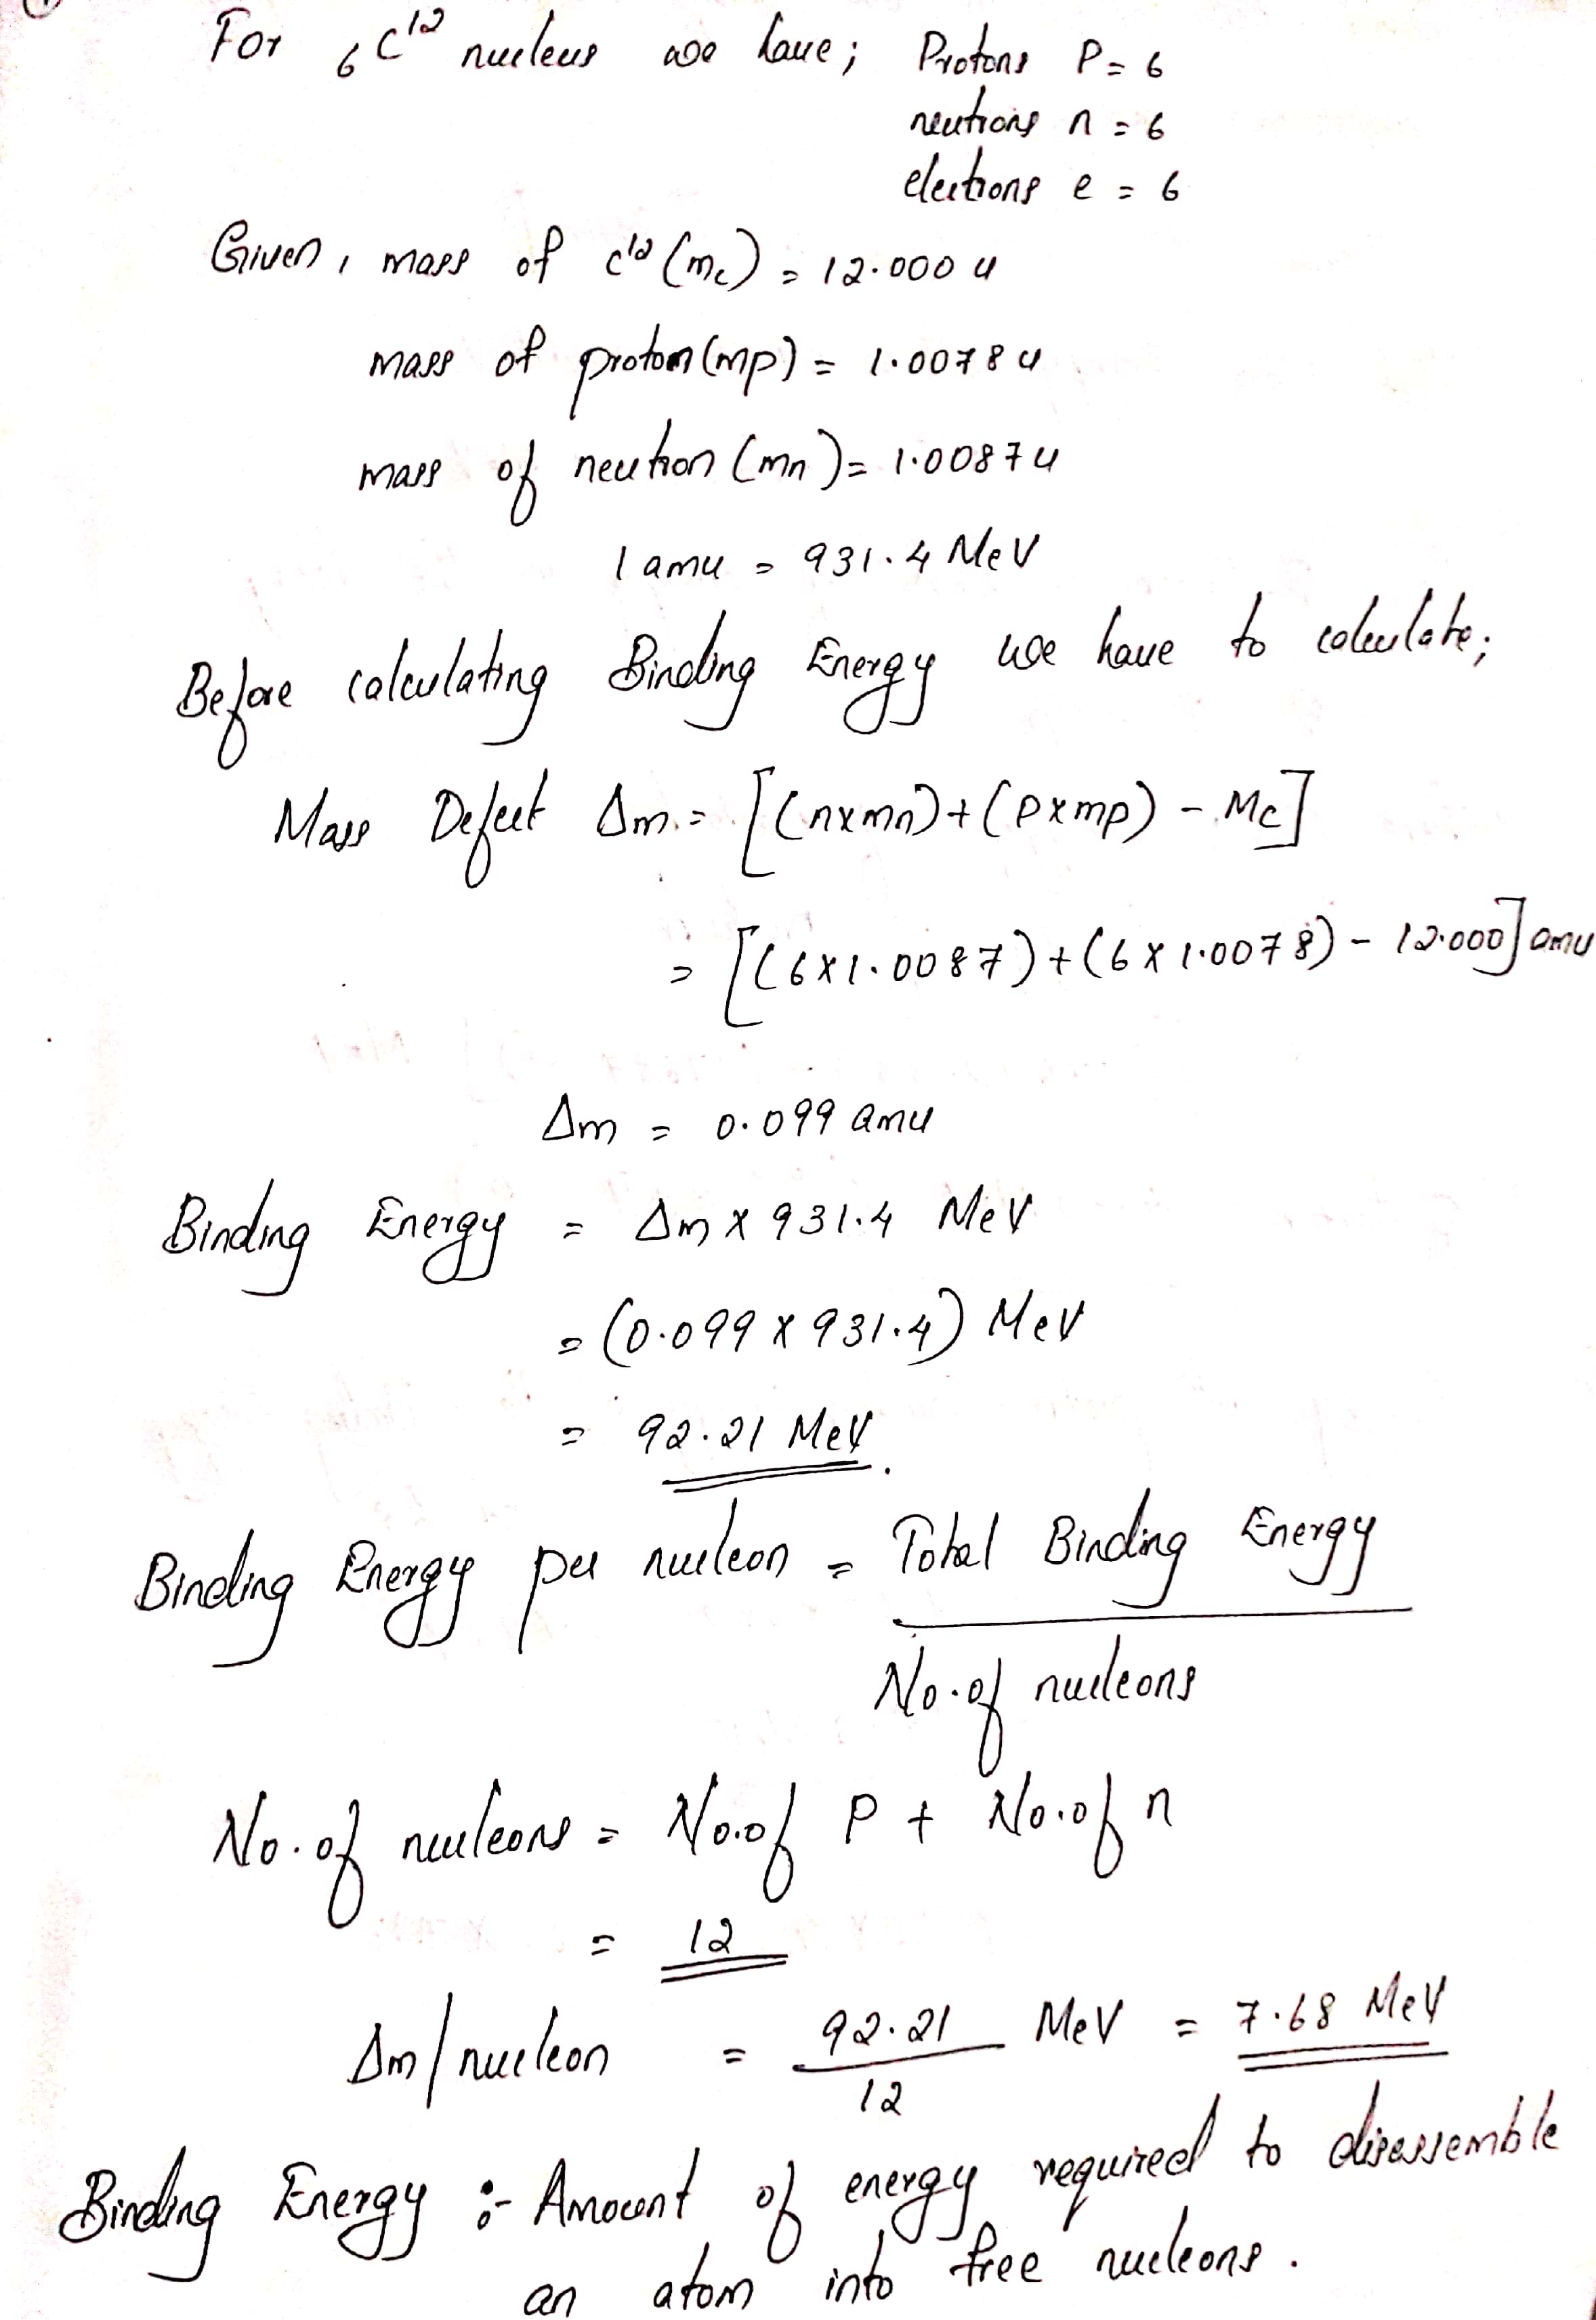 For ₆C¹² nucleus we have; Protons P = 6
neutrons n = 6
electrons e = 6
Given, mass of C¹² (mc) = 12.000 u
mass of proton (mp) = 1.0078 u
mass of neutron (mn) = 1.0087 u
1 amu = 931.4 MeV
Before calculating Binding Energy we have to calculate;
Mass Defect Δm = [(n×mn) + (P×mp) - Mc]
= [(6×1.0087) + (6×1.0078) - 12.000] amu
Δm = 0.099 amu
Binding Energy = Δm × 931.4 MeV
= (0.099 × 931.4) MeV
= 92.21 MeV.
Binding Energy per nucleon = Total Binding Energy
No. of nucleons
No. of nucleons = No. of P + No. of n
= 12
Δm/nucleon = 92.21 / 12 MeV = 7.68 MeV
Binding Energy :- Amount of energy required to disassemble
an atom into free nucleons.